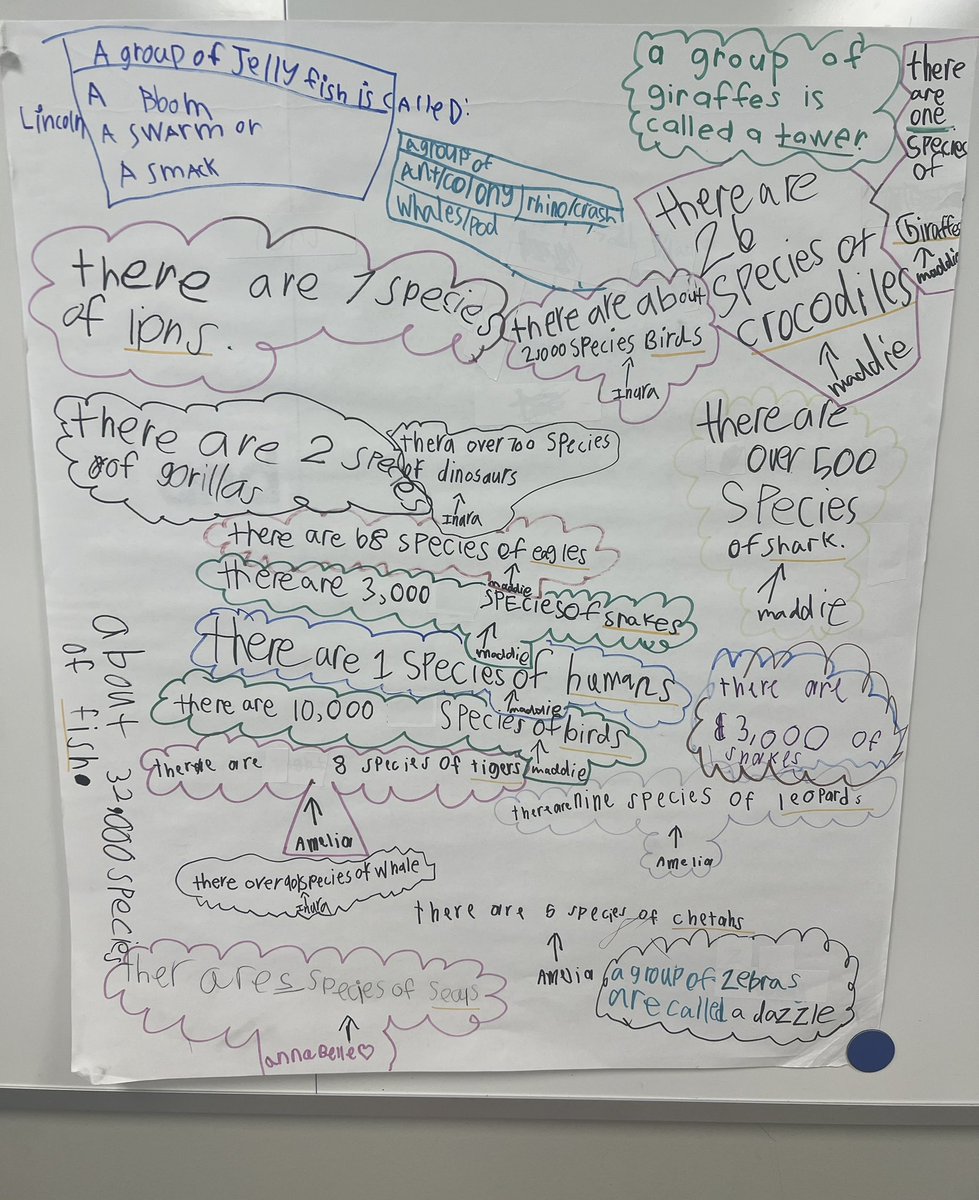 A group of Jelly fish is cAlleD:
A Bloom
A SWARM or
A SMACK
Lincoln
a group of
giraffes is
called a tower
there
are
one
species
of
Giraffes
maddie
a group of
Ant/colony rhino/crash
Whales/pod
there are
26
species of
crocodiles
maddie
there are 7 species
of lions.
there are about
2,000 species Birds
Inara
there are 2 species
of gorillas
thera over 700 species
of dinosaurs
Inara
there are
over 500
species
of shark.
maddie
there are 68 species of eagles
maddie
there are 3,000 species of snakes
maddie
there are 1 species of humans
maddie
there are 10,000 species of birds
maddie
there are
$3,000 of
snakes
there are 8 species of tigers
Amelia
there are nine species of leopards
Amelia
about 32,000 species
of fish.
there over 90 species of whale
Inara
there are 6 species of chetahs
Amelia
ther are species of
annaBelle♡
a group of zebras
are called a dazzle